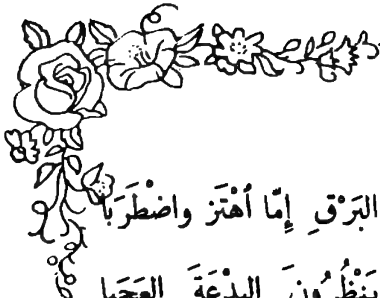 البَرْقِ إِمَّا اُهْتَز واضْطَرَبا
يَنْظُرُونَ البِدْعَةَ العَجَبا